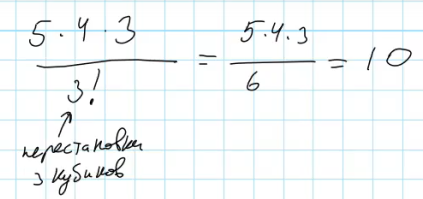 5·4·3 / 3! = 5·4·3 / 6 = 10
перестановки
3 кубиков